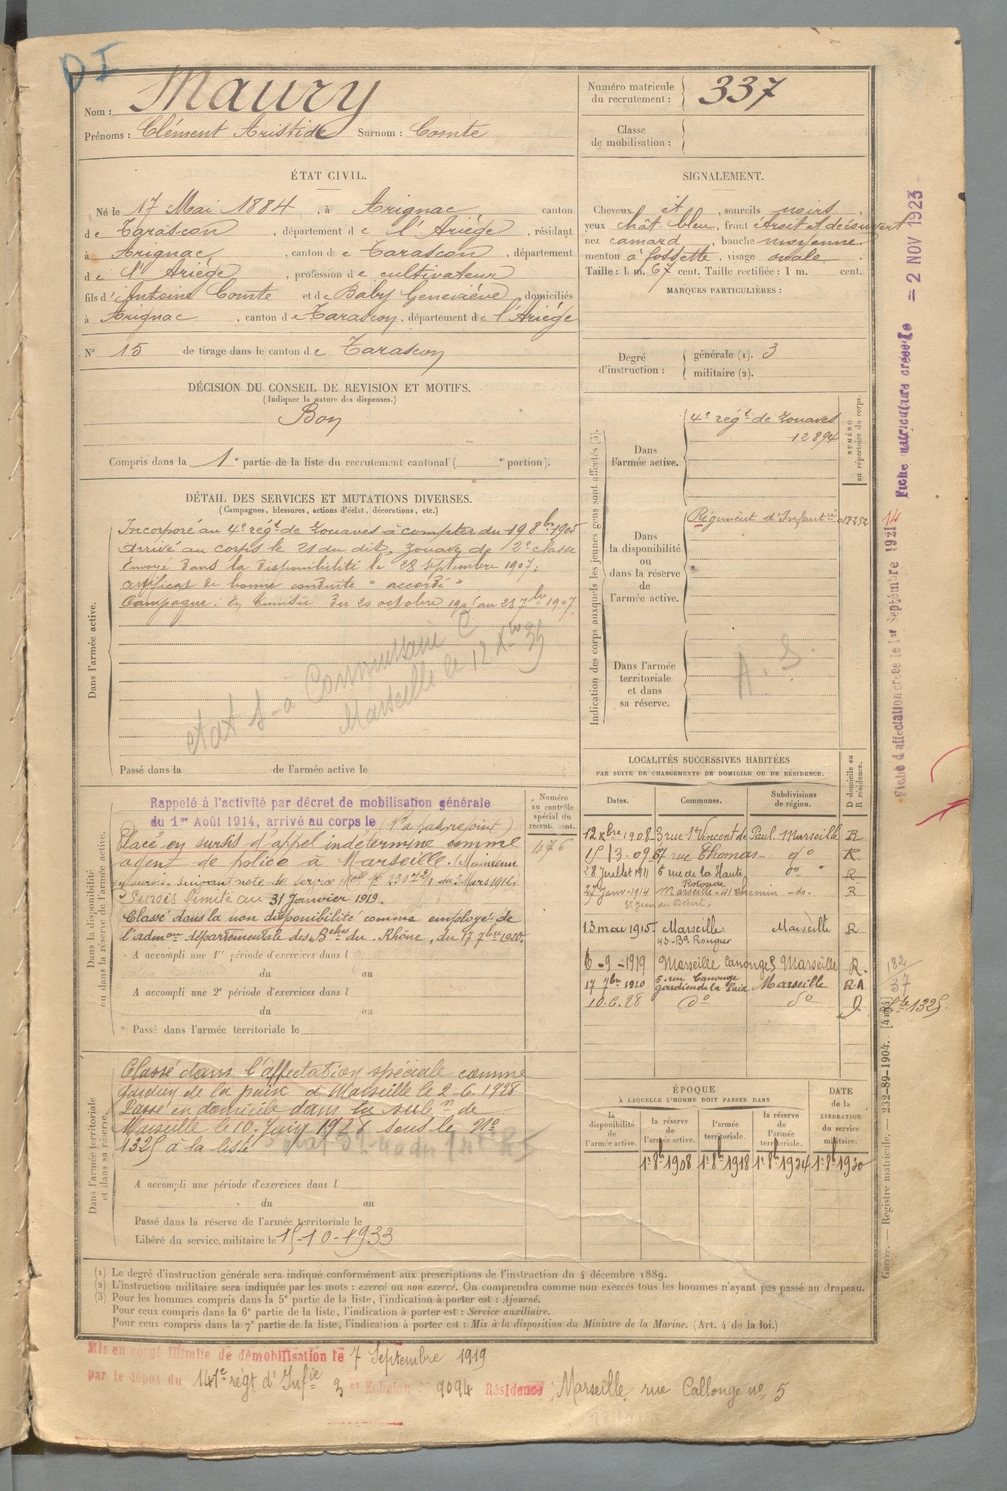 DI
Nom : Maury
Prénoms : Clément Aristide Surnom : Comte
Numéro matricule du recrutement : 337
Classe de mobilisation :
ÉTAT CIVIL.
Né le 17 Mai 1884, à Arignac canton
de Tarascon, département de l'Ariège, résidant
à Arignac, canton de Tarascon, département
de l'Ariège, profession de cultivateur
fils d'Antoine Comte et de Baby Geneviève domiciliés
à Arignac, canton de Tarascon, département de l'Ariège
N° 15 de tirage dans le canton de Tarascon
SIGNALEMENT.
Cheveux et, sourcils noirs
yeux chât. bleu, front étroit et découvert
nez camard, bouche moyenne
menton à fossette, visage ovale
Taille : 1 m. 67 cent. Taille rectifiée : 1 m. cent.
MARQUES PARTICULIÈRES :
Degré d'instruction : générale (1). 3
militaire (2).
DÉCISION DU CONSEIL DE REVISION ET MOTIFS.
(Indiquer la nature des dispenses.)
Bon
Compris dans la 1e partie de la liste du recrutement cantonal ( e portion).
DÉTAIL DES SERVICES ET MUTATIONS DIVERSES.
(Campagnes, blessures, actions d'éclat, décorations, etc.)
Dans l'armée active.
Incorporé au 4e régt de Zouaves à compter du 19 8bre 1905
Arrivé au corps le 21 du dit, Zouave de 2e classe
Envoyé dans la disponibilité le 28 Septembre 1907.
certificat de bonne conduite "accordé"
Campagne : En Tunisie du 20 octobre au 23 7bre 1907.
Commissaire
Marseille le 12 Xbre 35
Passé dans la de l'armée active le
Indication des corps auxquels les jeunes gens sont affectés (3).
NUMÉRO au répertoire du corps.
Dans l'armée active. 4e régt de Zouaves
12894
Dans la disponibilité ou dans la réserve de l'armée active. Régiment d'Infantie 018252
Dans l'armée territoriale et dans sa réserve. A. S.
Dans la disponibilité ou dans la réserve de l'armée active.
Numéro au contrôle spécial du recrutement.
476
Rappelé à l'activité par décret de mobilisation générale
du 1er Août 1914, arrivé au corps le (n'a pas rejoint)
Placé en sursis d'appel indéterminé comme
agent de police à Marseille. Maintenu
en sursis suivant note de service du 3 Mars 1916.
Sursis limite au 31 Janvier 1919.
Classé dans la non disponibilité comme employé de
l'admon départementale des Bches du Rhône, du 17 7bre 1920.
A accompli une 1re période d'exercices dans l
du au
A accompli une 2e période d'exercices dans l
du au
Passé dans l'armée territoriale le
LOCALITÉS SUCCESSIVES HABITÉES
PAR SUITE DE CHANGEMENTS DE DOMICILE OU DE RÉSIDENCE.
Dates. Communes. Subdivisions de région. D domicile ou R résidence.
12 Xbre 1908 3 rue St Vincent de Paul Marseille R
15-3-09 67 rue Thomas do R
28 Juillet 1911 6 rue de la Haute do R
Janv. 1914 Marseille Chemin -do- R
13 mai 1915 Marseille 43 Bd Rougier Marseille R
6-9-1919 Marseille Canonge 5 Marseille R
17 7bre 1920 5 rue Canonge gardien de la Paix Marseille R-A
10.6.28 do do D
182
37
Lte 1325
Dans l'armée territoriale et dans sa réserve.
Classé dans l'affectation spéciale comme
gardien de la paix à Marseille le 2-6-1928
Passé en domicile dans la subon de
Marseille le 10 Juin 1928 sous le No
1325 à la liste
A accompli une période d'exercices dans l
du au
Passé dans la réserve de l'armée territoriale le
Libéré du service militaire le 15-10-1933
ÉPOQUE
À LAQUELLE L'HOMME DOIT PASSER DANS
la disponibilité de l'armée active. la réserve de l'armée active. l'armée territoriale. la réserve de l'armée territoriale. DATE de la LIBÉRATION du service militaire.
1er 8bre 1908 1er 8bre 1918 1er 8bre 1924 1er 8bre 1930
(1) Le degré d'instruction générale sera indiqué conformément aux prescriptions de l'instruction du 4 décembre 1889.
(2) L'instruction militaire sera indiquée par les mots : exercé ou non exercé. On comprendra comme non exercés tous les hommes n'ayant pas passé au drapeau.
(3) Pour les hommes compris dans la 5e partie de la liste, l'indication à porter est : Ajourné.
Pour ceux compris dans la 6e partie de la liste, l'indication à porter est : Service auxiliaire.
Pour ceux compris dans la 7e partie de la liste, l'indication à porter est : Mis à la disposition du Ministre de la Marine. (Art. 4 de la loi.)
Mis en congé illimité de démobilisation le 7 Septembre 1919
par le dépôt du 141e régt d'Infie 3 et Echelon no 9094 Résidence : Marseille rue Callonge no 5
Fiche d'affectation créée le 1er Septembre 1921 14
Fiche matriculaire créée le = 2 NOV 1923
Guerre. — Registre matricule. — 232-89-1904.